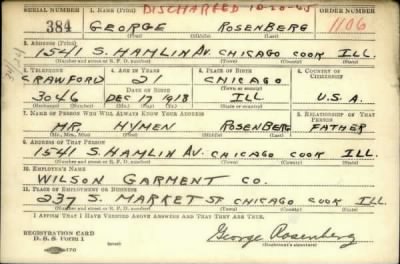 SERIAL NUMBER 1. NAME (Print) DISCHARGED 10-20-45 ORDER NUMBER
384 GEORGE ROSENBERG 1106
(First) (Middle) (Last)
2. ADDRESS (Print)
1541 S. HAMLIN AV. CHICAGO COOK ILL.
(Number and street or R. F. D. number) (Town) (County) (State)
3. TELEPHONE 4. AGE IN YEARS 5. PLACE OF BIRTH 6. COUNTRY OF CITIZENSHIP
CRAWFORD 21 CHICAGO
DATE OF BIRTH
3046 DEC 17 1918 ILL U.S.A.
(Exchange) (Number) (Mo.) (Day) (Yr.) (State or country)
7. NAME OF PERSON WHO WILL ALWAYS KNOW YOUR ADDRESS 8. RELATIONSHIP OF THAT PERSON
MR HYMEN ROSENBERG FATHER
(Mr., Mrs., Miss) (First) (Middle) (Last)
9. ADDRESS OF THAT PERSON
1541 S. HAMLIN AV. CHICAGO COOK ILL.
(Number and street or R. F. D. number) (Town) (County) (State)
10. EMPLOYER'S NAME
WILSON GARMENT CO.
11. PLACE OF EMPLOYMENT OR BUSINESS
237 S. MARKET ST CHICAGO COOK ILL
(Number and street or R. F. D. number) (Town) (County) (State)
I AFFIRM THAT I HAVE VERIFIED ABOVE ANSWERS AND THAT THEY ARE TRUE.
REGISTRATION CARD
D. S. S. FORM 1 George Rosenberg
(Registrant's signature)